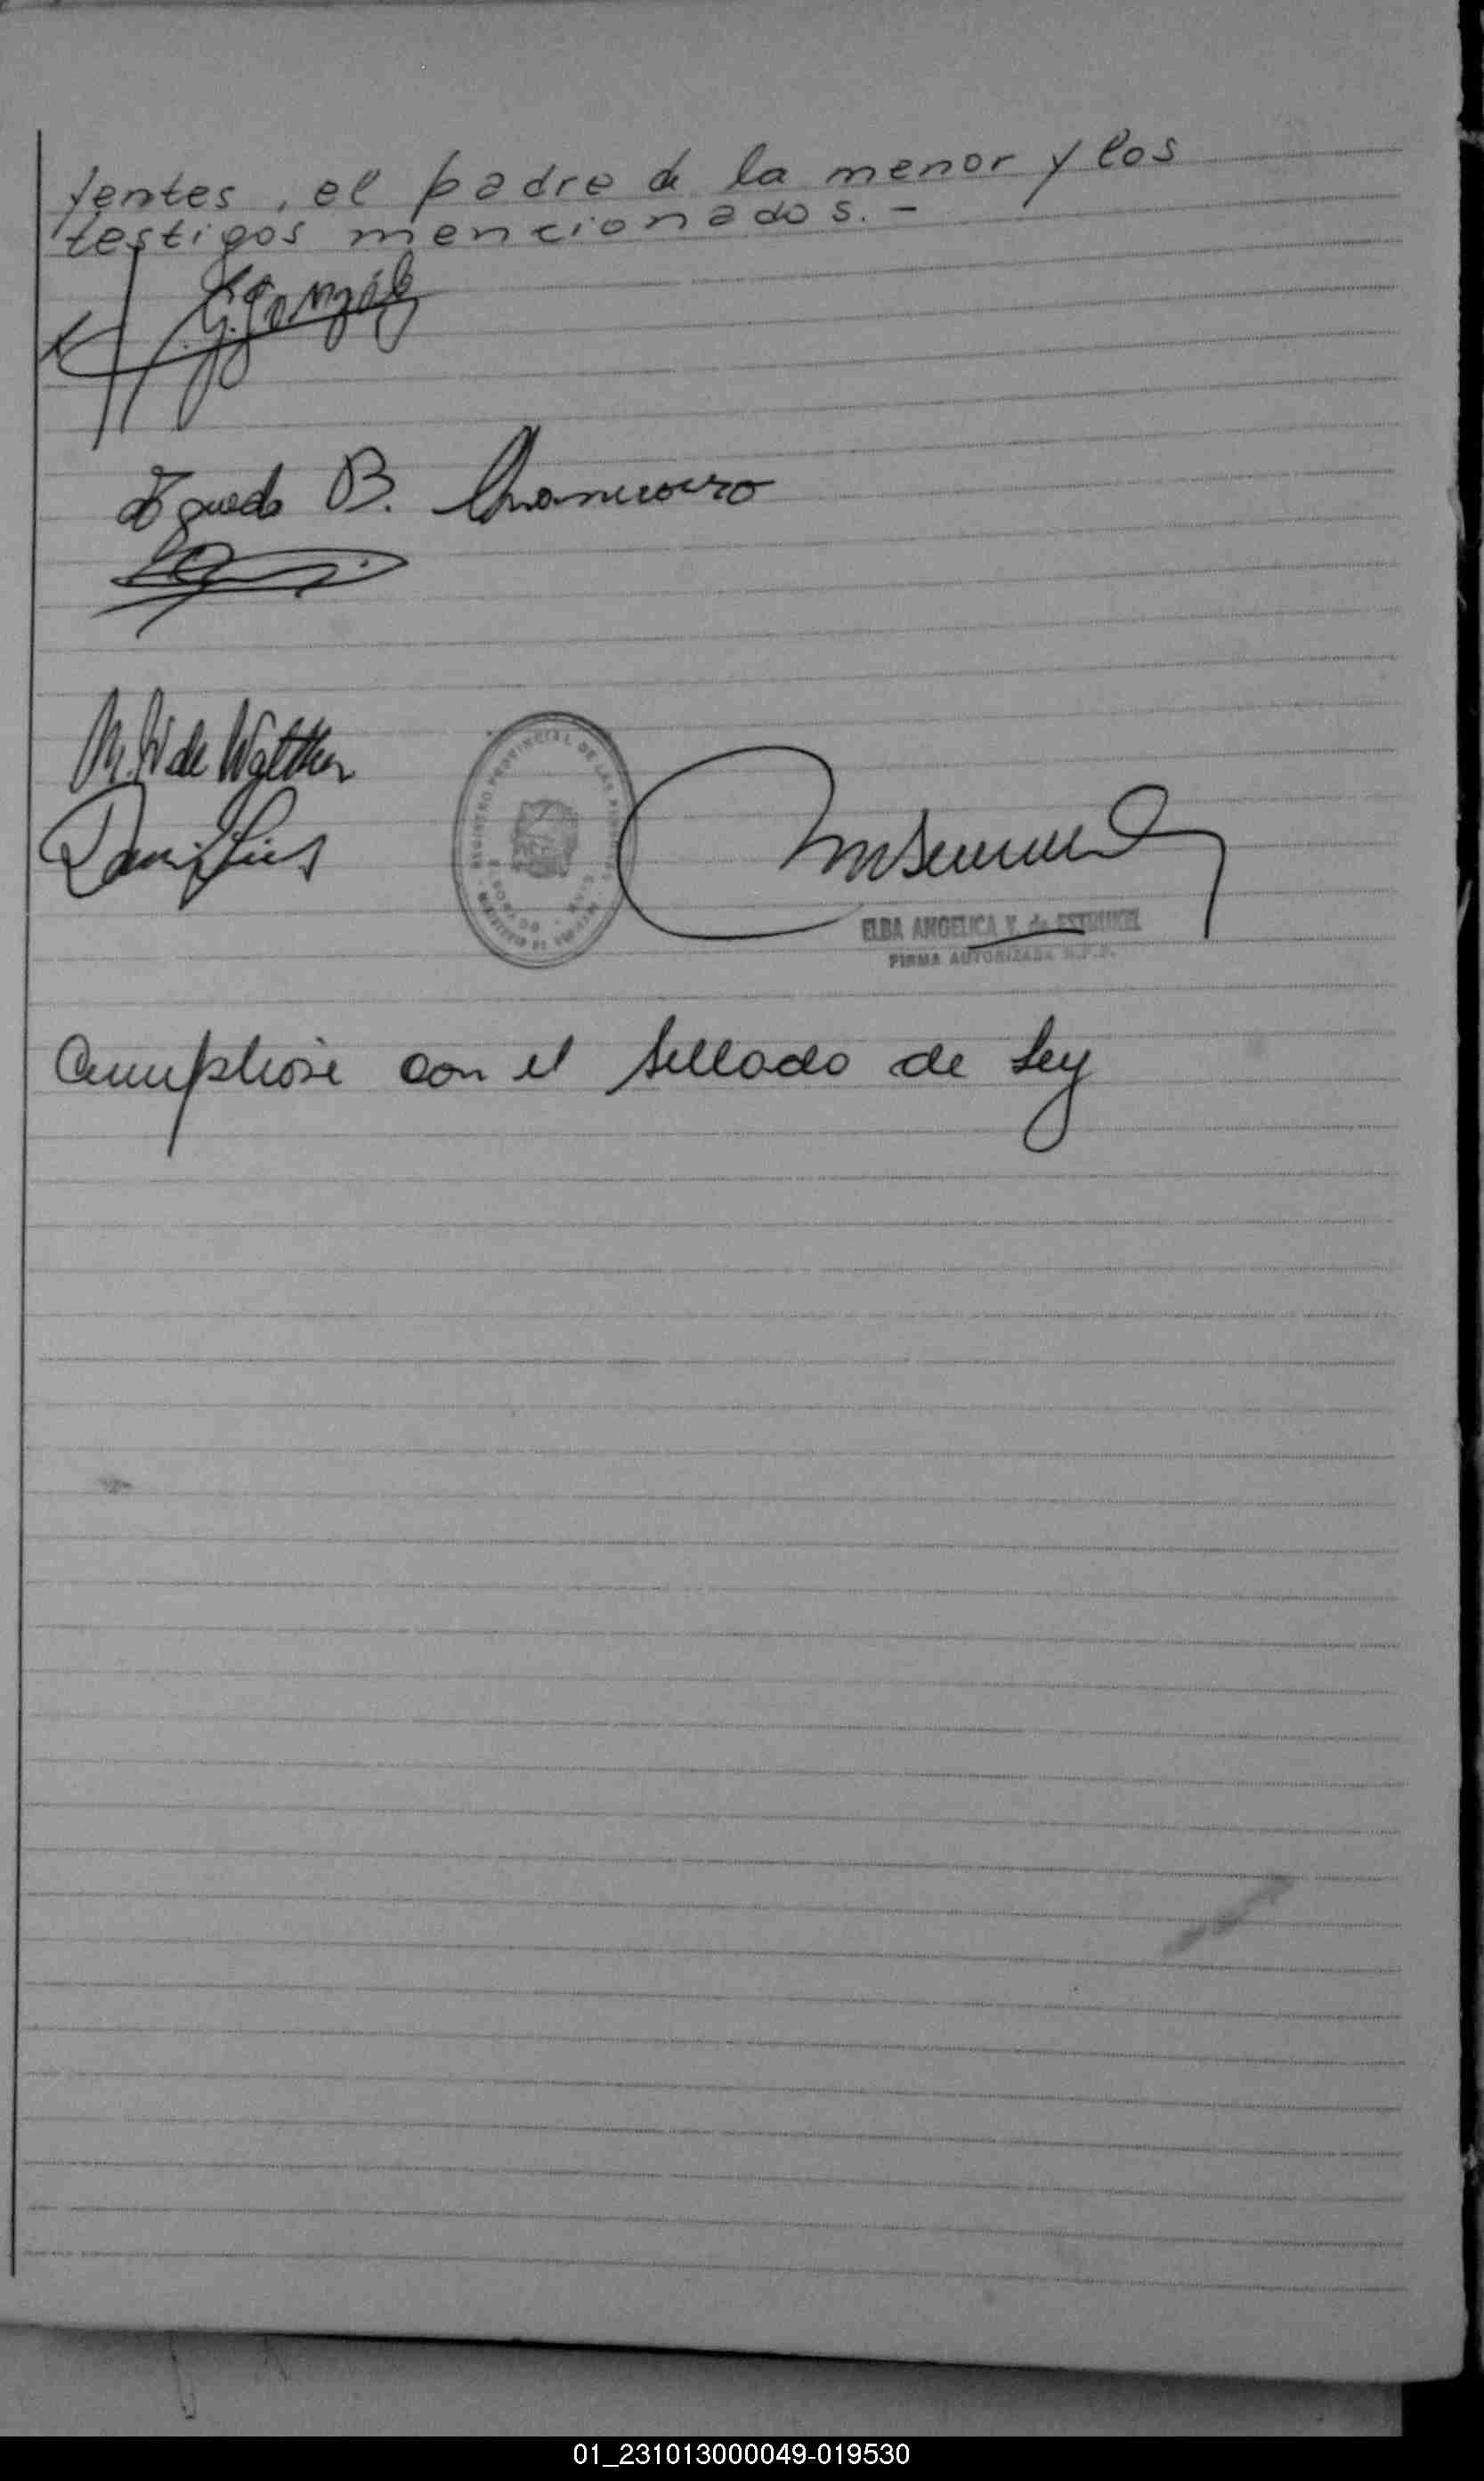 yentes, el padre de la menor y los
testigos mencionados. -
G. González
B.
M. W de Walther
REGISTRO PROVINCIAL DE LAS PERSONAS
ELDORADO
ELBA ANGELICA V. de
FIRMA AUTORIZADA R.P.P.
Cumpliose con el Sellado de Ley
01_231013000049-019530